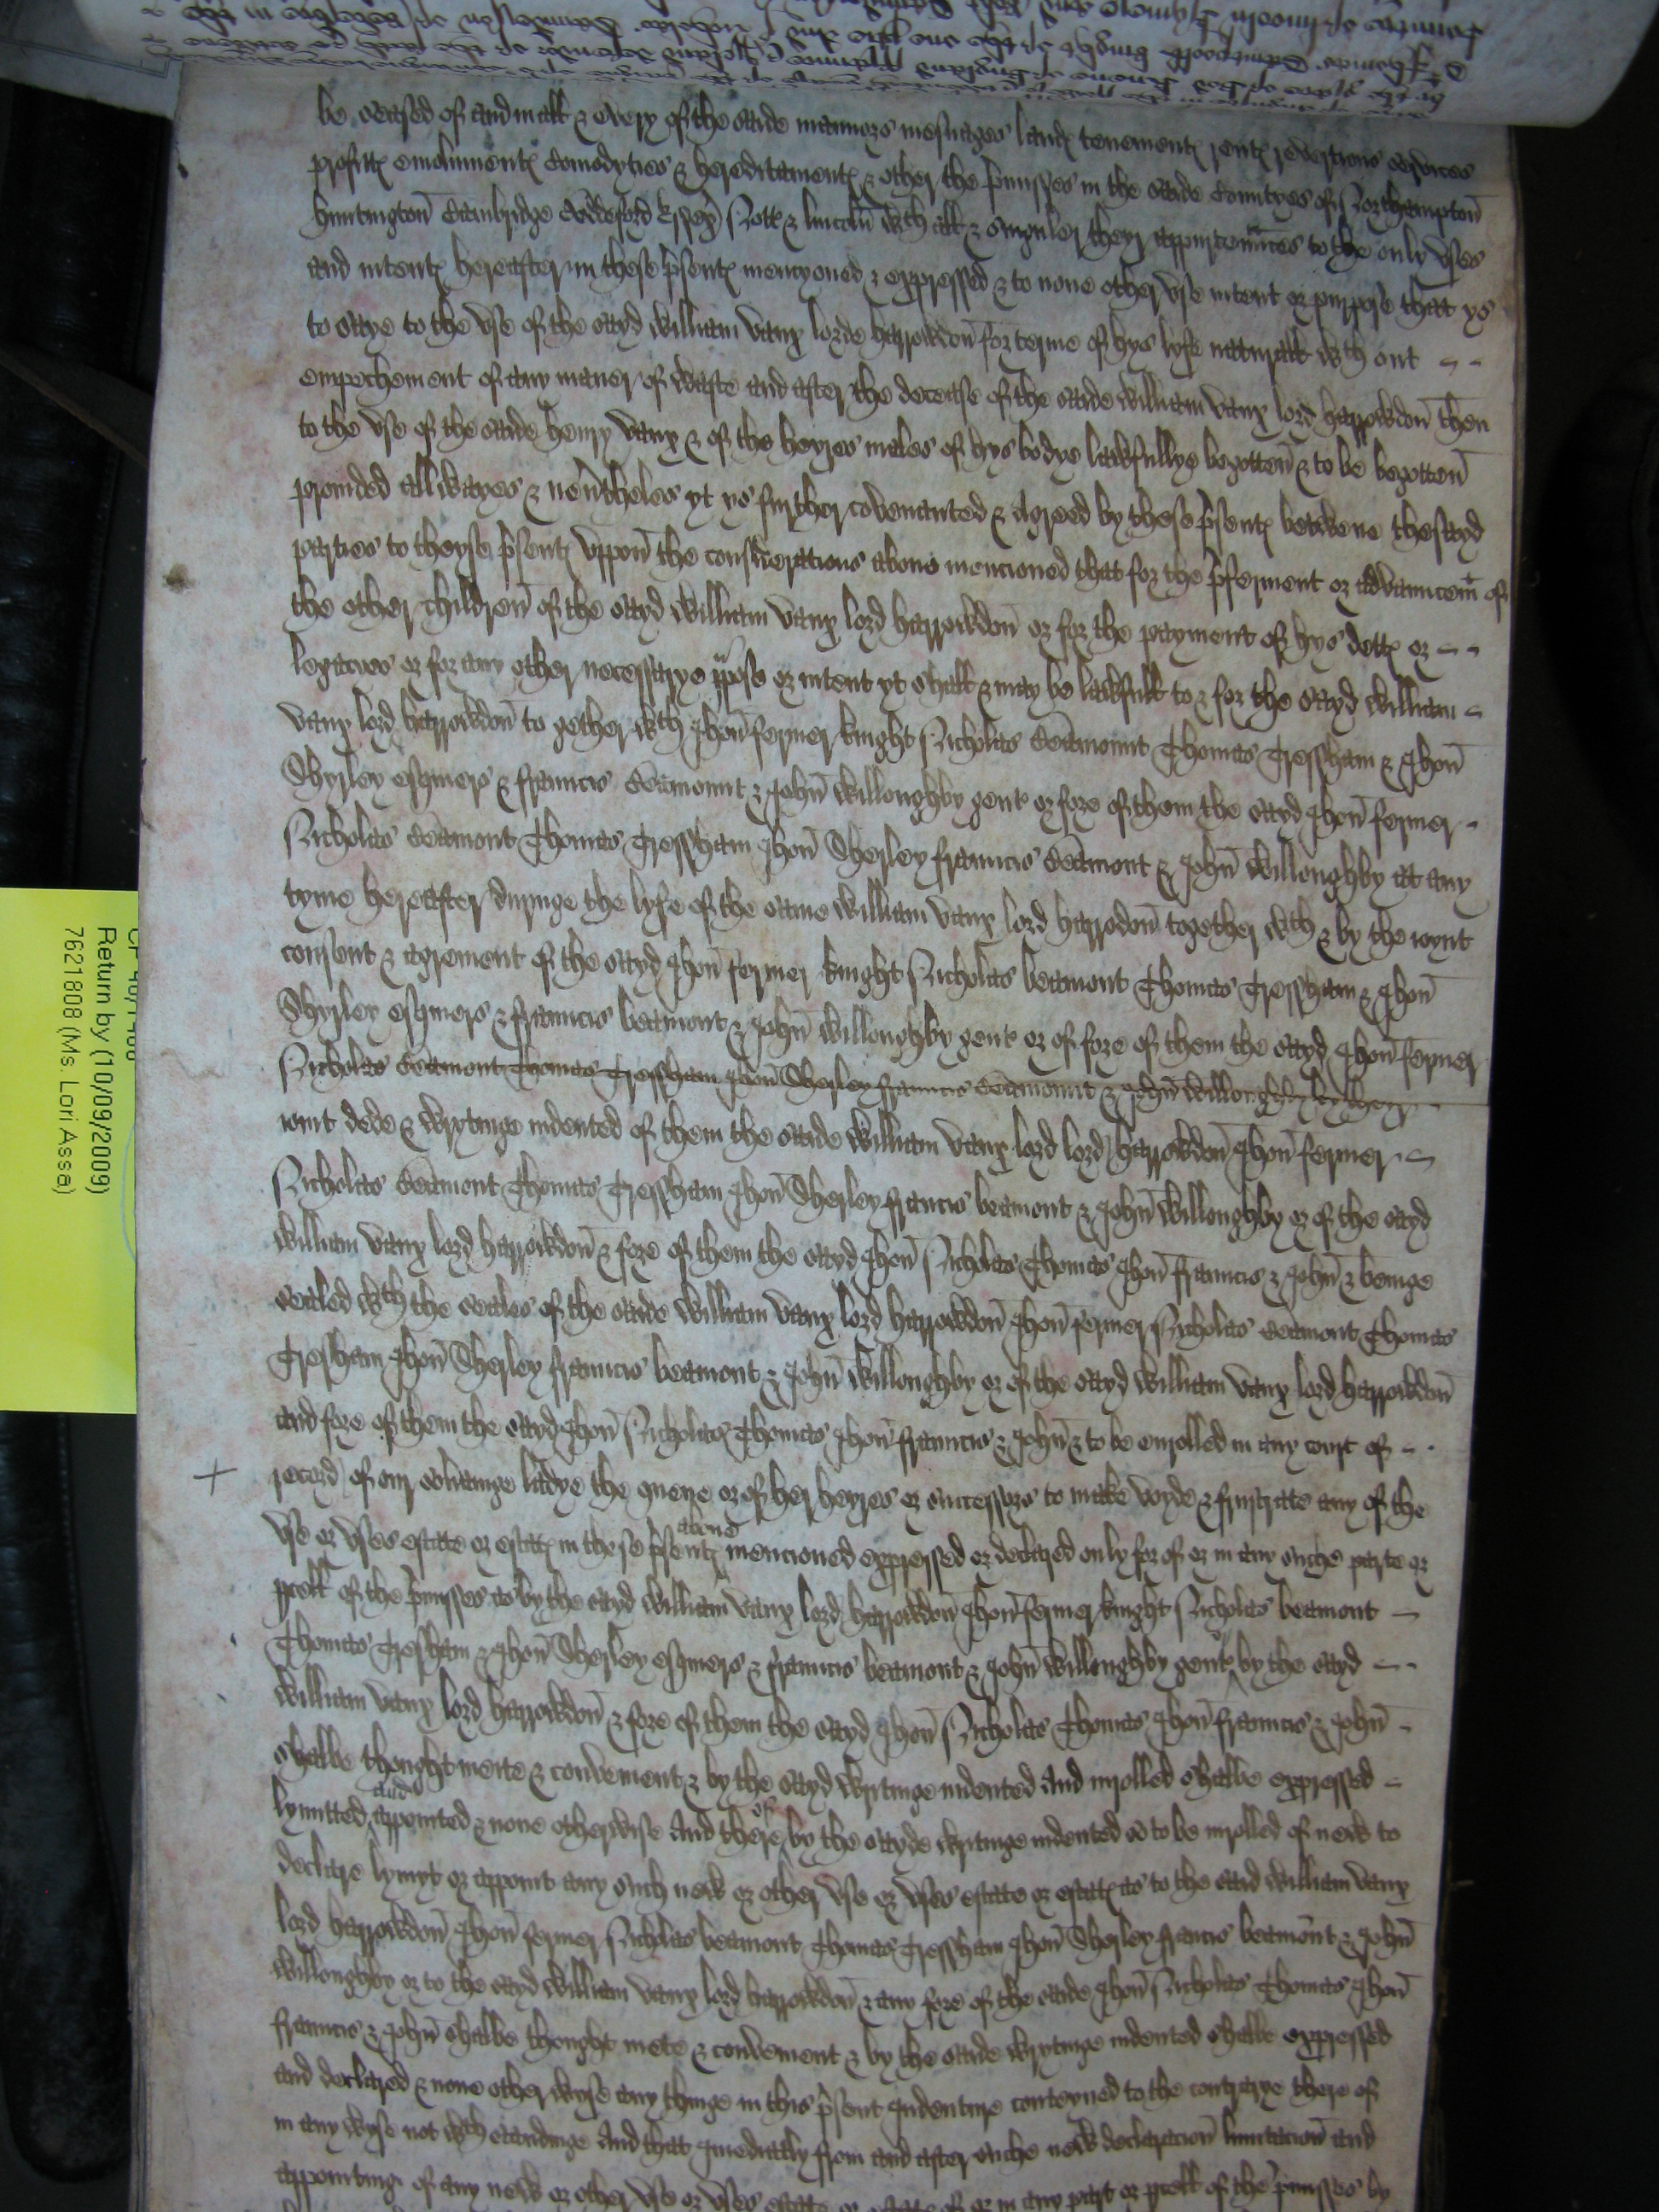 be seased of and in all & every of the saide mannors mesuages land tenement rent reversions services
profitt emolument Comodyties & hereditament & other the pmisses in the saide Countyes of Northampton
huntington Cambridge Bedford Essex Nott & lincoln wth all & singuler theyr appurtennces to the only vses
and intent hereafter in these psent mencyoned & expressed & to none other vse intent or purpose that ys
to saye to the vse of the sayd William vaux lorde harrowdon for terme of hys lyfe naturall wth out
empechement of any maner of waste and after the decease of the saide William vaux lord harrowdon then
to the vse of the saide henry vaux & of the heyres males of hys bodye lawfullye begotten & to be begotten
provided allwayes & nevtheles yt ys further covenanted & agreed by these psent betwene the sayd
parties to theyse psent vppon the consideracions above mencioned that for the pferment or advauncemt of
the other children of the sayd William vaux lord harrowdon or for the payment of hys dett or
legacies or for any other necessarye ppose or intent yt shall & may be lawfull to & for the sayd William
vaux lord harrowdon to gether wth Jhon fermer knight Nicholas Beamount Thomas Tressham & Jhon
Shyrley esquiers & francis Beamount & John Willoughby gent or fore of them the sayd Jhon fermer
Nicholas Beamont Thomas Tressham Jhon Sherley francis Beamont & John Willoughby at any
tyme hereafter duringe the lyfe of the same William vaux lord harrodon together wth & by the ioynt
consent & agrement of the sayd Jhon fermer knight Nicholas beamont Thomas Tressham & Jhon
Shyrley esquiers & francis beamont & John Willoughby gent or of fore of them the sayd Jhon fermer
Nicholas Beamont Thomas Tressham Jhon Sherley francis Beamount & John Willoughby by they
ioint dede & wrytinge indented of them the saide William vaux lord lord harrowdon Jhon fermer
Nicholas Beamont Thomas Tressham Jhon Sherley francis beamont & John Willoughby or of the sayd
William vaux lord harrowdon & fore of them the sayd Jhon Nicholas Thomas Jhon francis & John & beinge
sealed wth the seales of the saide William vaux lord harrowdon Jhon fermer Nicholas Beamont Thomas
Tresham Jhon Sherley francis beamont & John Willoughby or of the sayd William vaux lord harrowdon
and fore of them the sayd Jhon Nicholas Thomas Jhon francis & John & to be enrolled in any court of
record of our soveraigne ladye the quene or of her heyres or successors to make voyde & frustrate any of the
vse or vses estate or estat in these psent above mencioned expressed or declared only for of or in any suche parte or
pcell of the pmisses as by the sayd William vaux lord harrowdon Jhon fermer knight Nicholas beamont
Thomas Tresham & Jhon Sherley esquiers & francis beamont & John Willoughby gent or by the sayd
William vaux lord harrowdon & fore of them the sayd Jhon Nicholas Thomas Jhon francis & John
shalbe thought meite & convenient & by the sayd wrytinge indented And inrolled shalbe expressed
lymitted and appointed & none otherwise And there of by the sayde wrytinge indented to be inrolled of new to
declare lymyt or appoint any such new or other vse or vses estate or estat as to the said William vaux
lord harrowdon Jhon fermer Nicholas beamont Thomas Tressham Jhon Sherley francis beamont & John
Willoughby or to the sayd William vaux lord harrowdon & any fore of the saide Jhon Nicholas Thomas Jhon
francis & John shalbe thought mete & convenient & by the saide wrytinge indented shalbe expressed
and declared & none other wyse any thinge in this psent Indenture conteyned to the contrarye there of
in any wyse not wth standinge And that Imediatly from and after suche new declaracion limitacion and
appointinge of any new or other vse or vses estate or estate of or in any part or pcell of the pmisses by
Return by (10/09/2009)
7621808 (Ms. Lori Assa)